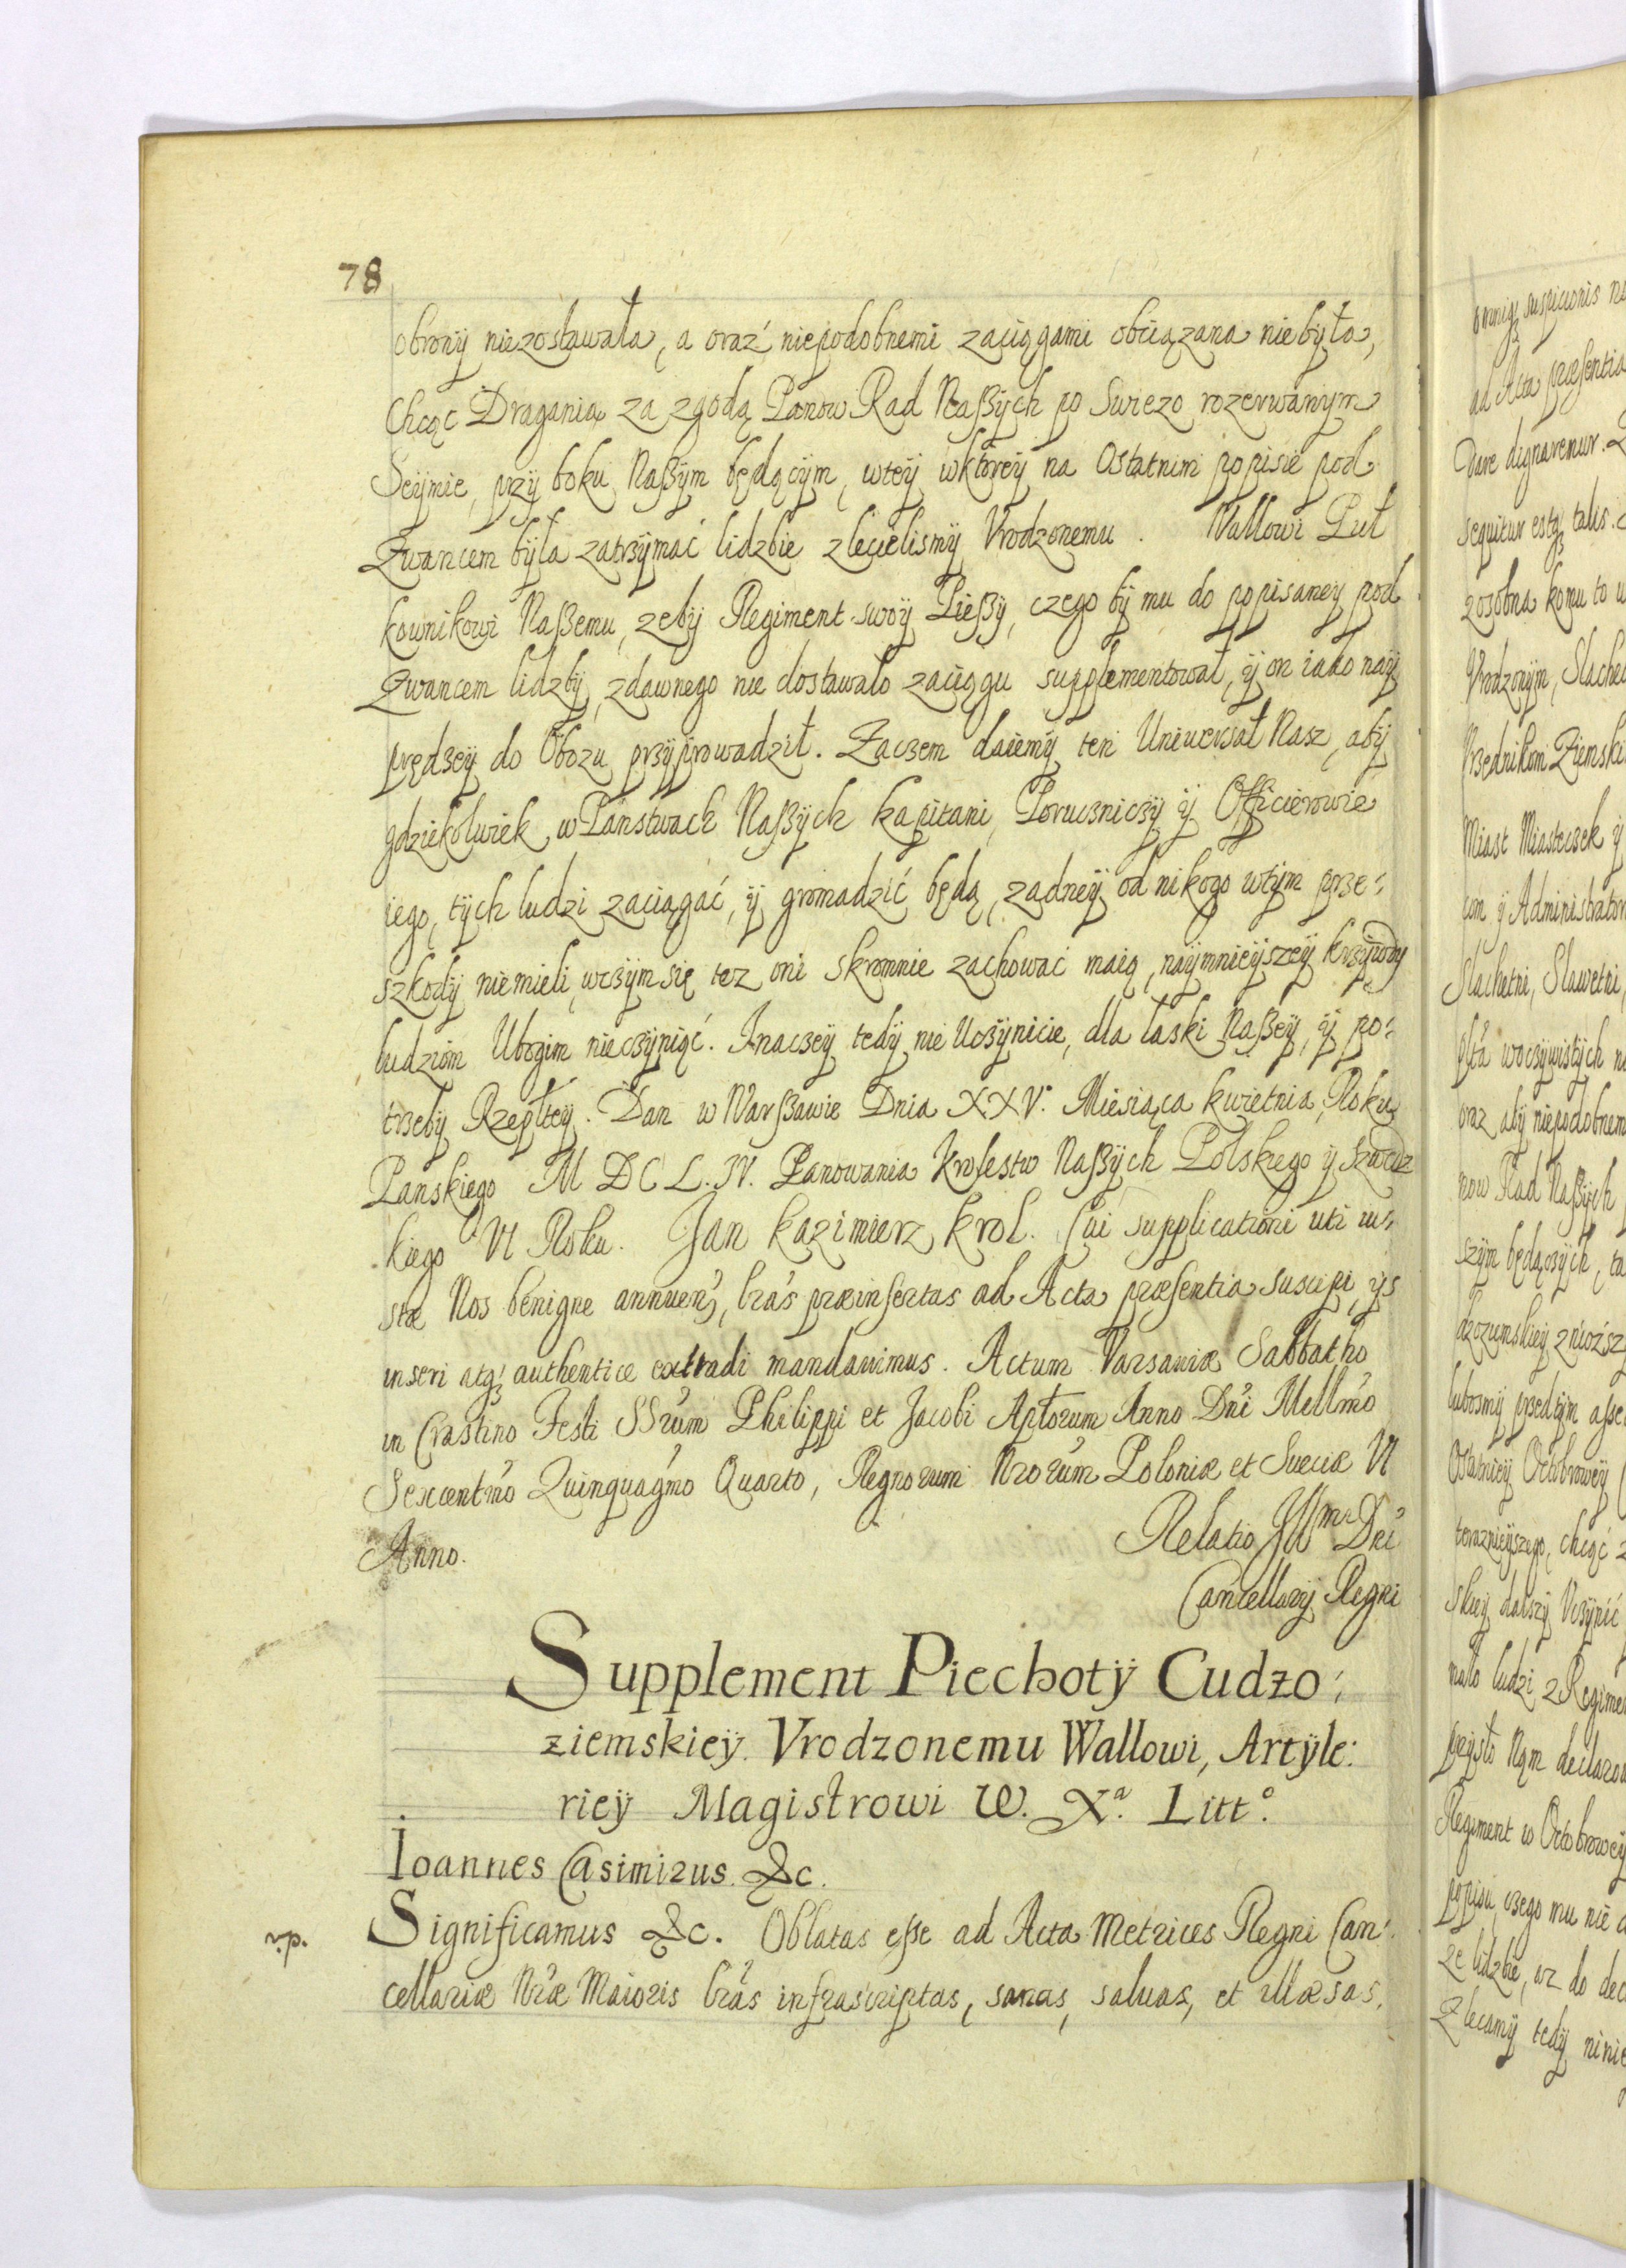 78
obronÿ niezostawała, a oraz niepodobnemi zaciągami obciązana niebyła,
Chcąc Dragania za zgodą Panow Rad Naßÿch po Swiezo rozerwanÿm
Seÿmie, przÿ boku Naßÿm będącÿm, wteÿ wktoreÿ na Ostatnim popisie pod
Zwancem bÿła zatrzÿmać lidzbie zlecielismÿ Vrodzonemu. Wallowi Puł
kownikowi Naßemu, zebÿ Regiment swoÿ Pießÿ, czego bÿ mu do popisaneÿ pod
Zwancem lidzbÿ, zdawnego nie dostawało zaciągu supplementował, ÿ on iako naÿ
prędzeÿ do Obozu przÿprowadził. Zaczem daiemÿ ten Uniwersał Nasz, abÿ
gdziekolwiek w Panstwach Naßÿch kapitani, Porucznicÿ ÿ Officierowie
iego, tÿch ludzi zaciągać, ÿ gromadzić będą, zadneÿ od nikogo wtÿm prze:
szkodÿ niemieli, wczÿm się tez oni skromnie zachować maią, naÿmnieÿszeÿ krzÿwdÿ
ludziom Ubogim nieczÿniąć. Inaczeÿ tedÿ nie Uczÿnicie, dla łaski Naßeÿ, ÿ po:
trzebÿ Rzeplteÿ. Dan w Warßawie Dnia XXV. Miesiąca kwietnia, Roku
Panskiego M D C L. IV. Panowania Krolestw Naßÿch Polskiego ÿ Szwedz
kiego VI Roku. Jan Kazimierz Krol. Cui supplicationi uti ius:
stæ Nos benigne annuen, lras præinsertas ad Acta præsentia suscipi, ÿs
inseri atq authentice extradi mandauimus. Actum Varsauiæ Sabbatho
in Crastino Festi SSrum Philippi et Jacobi Aptorum Anno Dni Mellmo
Sexcentmo Quinquagmo Quarto, Regnorum Nrorum Poloniæ et Sueciæ VI
Anno.
Relatio Illmi Dni
Cancellarÿ Regni
Supplement Piechotÿ Cudzo:
ziemskieÿ. Vrodzonemu Wallowi, Artÿle:
rieÿ Magistrowi W. Xa. Litto.
Ioannes Casimirus. &c.
v.p.
Significamus &c. Oblatas esse ad Acta Metrices Regni Can:
cellariæ Nræ Maioris lras infrascriptas, sanas, saluas, et illæsas,
ad Acta præsentia
Dare dignaremur.
sequitur estq talis.
zosobna komu to w
Miast Miasteczek ÿ
Slachetni, Slawetni,
oraz abÿ niepodobnem
now Rad Naßÿch
szÿm będącÿch, ta
Ostatnieÿ Octobroweÿ
mało ludzi z Regimen
Regiment w Octobroweÿ
popisu, czego mu nie
Zlecamÿ tedÿ ninie